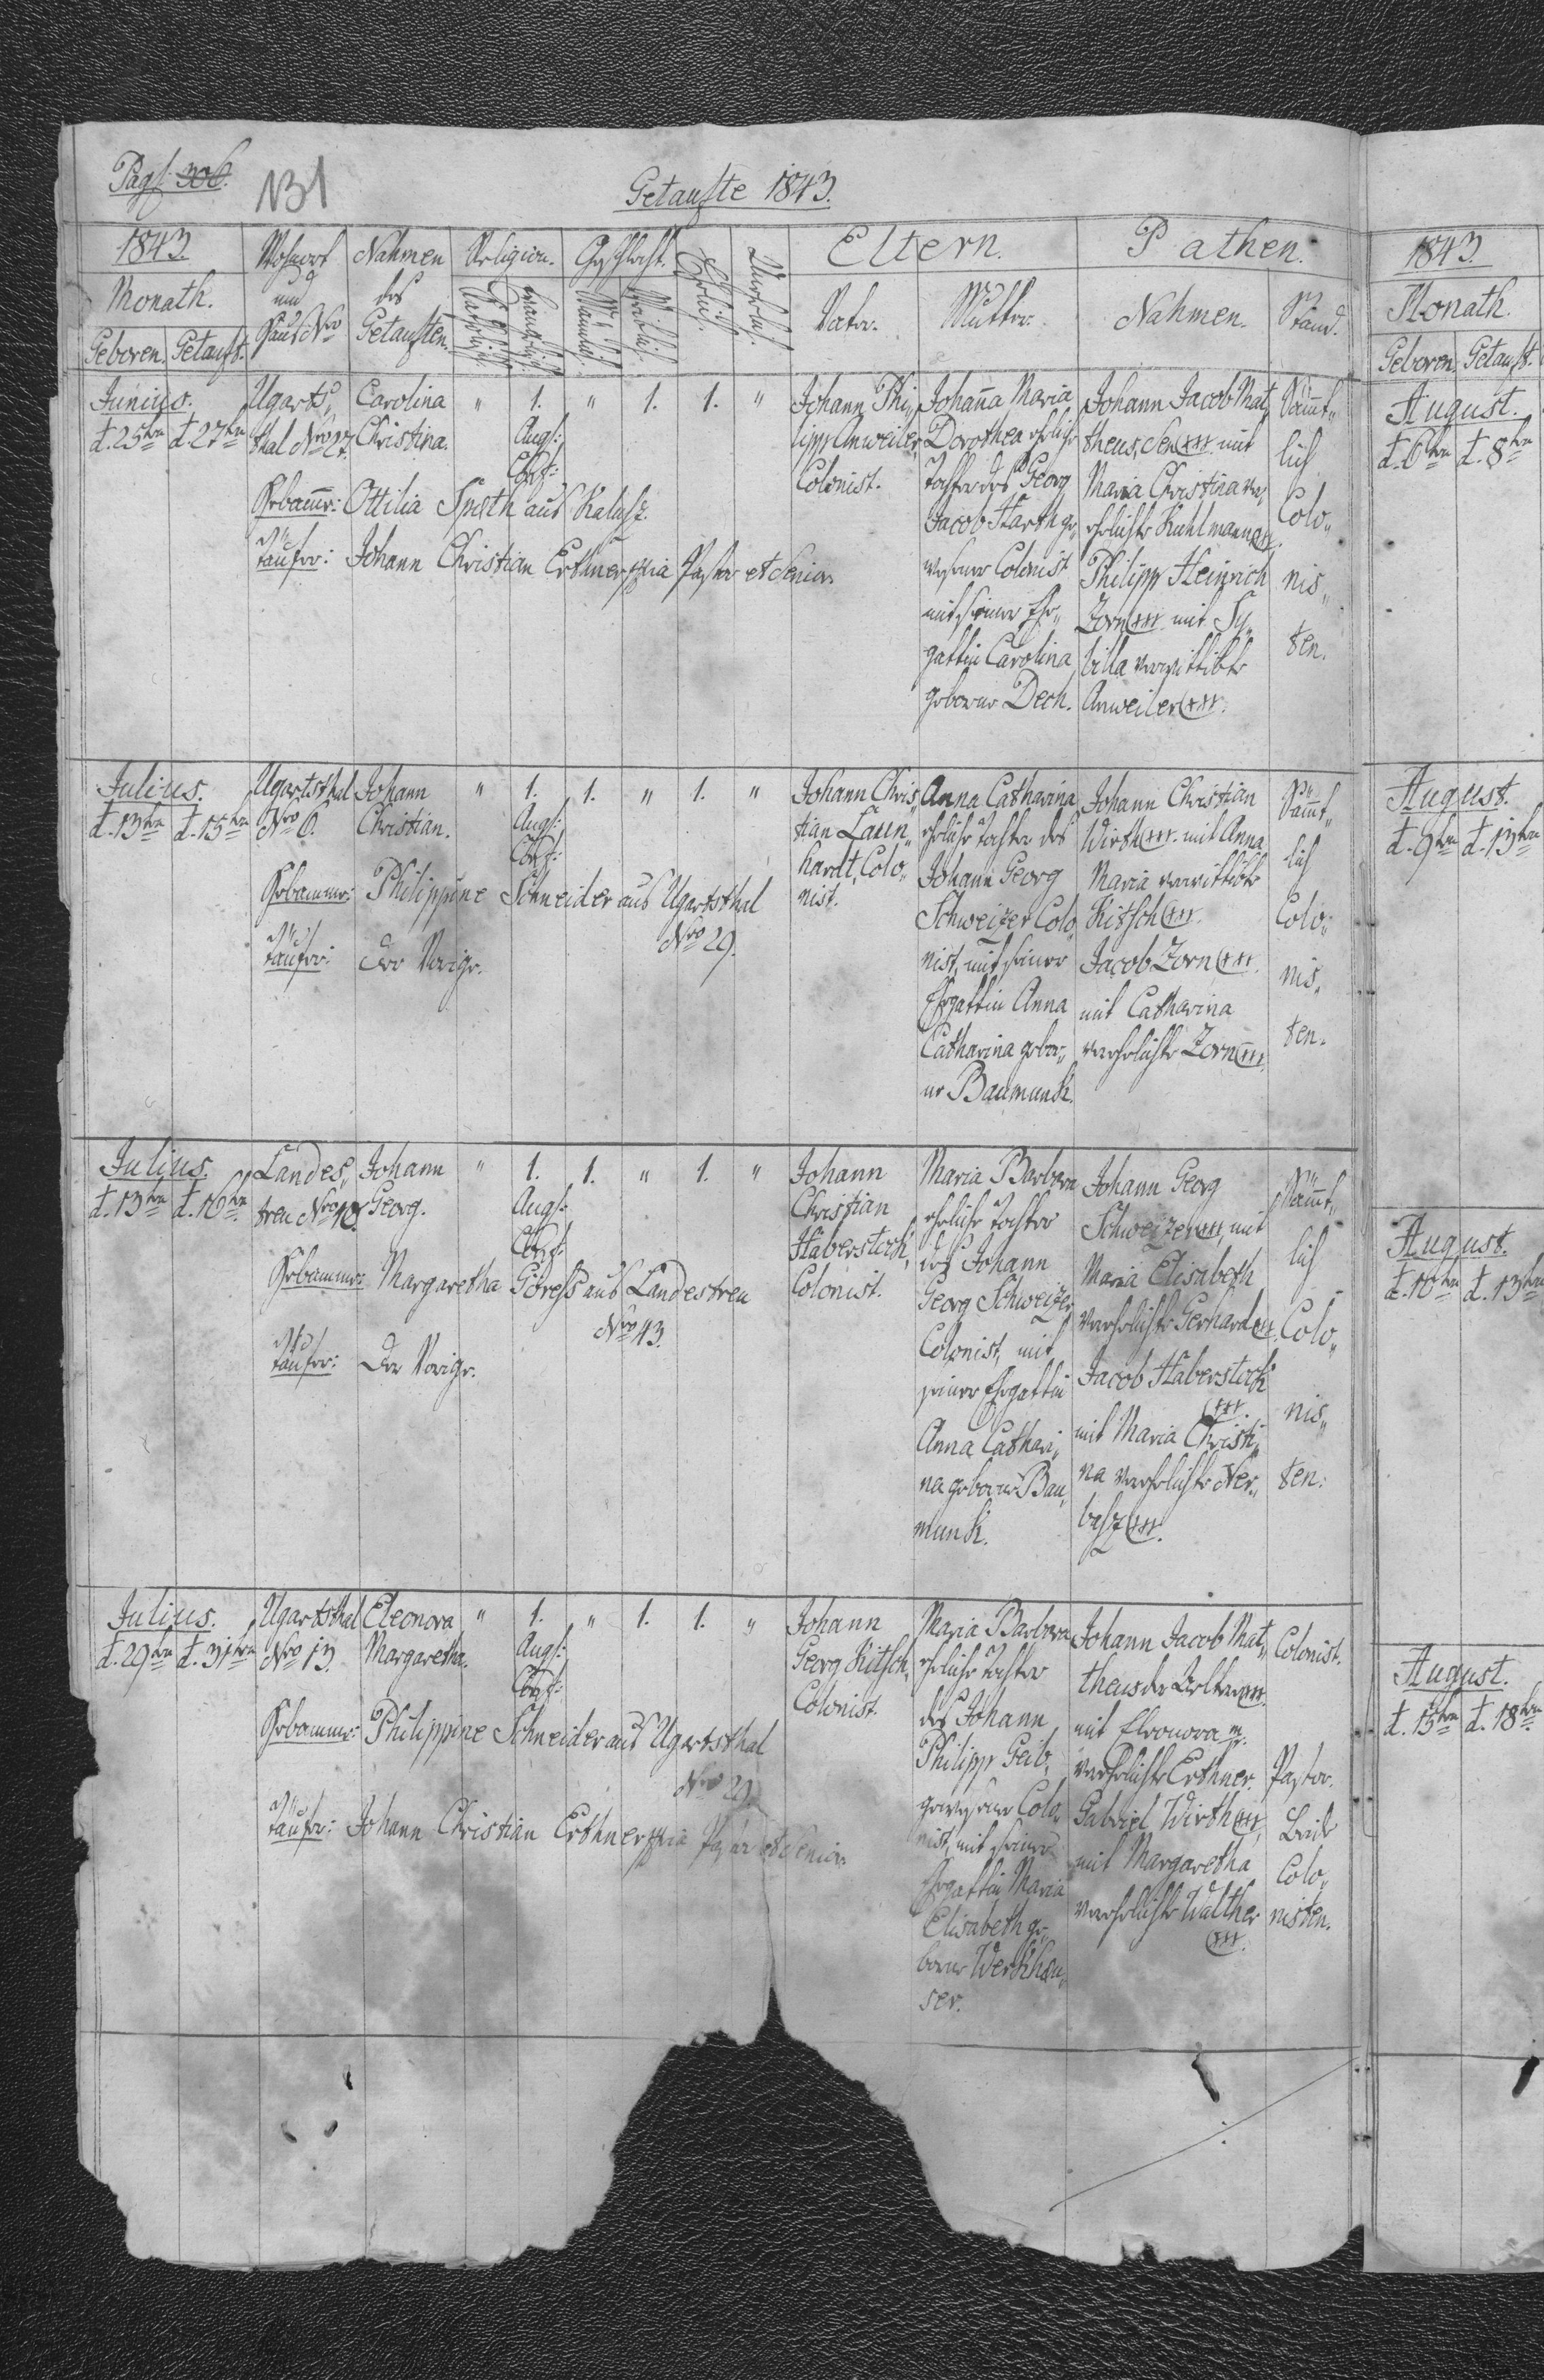 Pag: 306.
131
Getaufte 1843.
1843.
Monath.
Geboren. Getauft.
Wohnort
und
Haus Nro
Nahmen
des
Getauften.
Religion.
Katholisch.
Evangelisch.
Geschlecht.
Männlich.
Weiblich.
Ehelich.
Unehelich.
Eltern.
Vater.
Mutter.
Pathen.
Nahmen.
Stand.
Junius.
d. 25ten d. 27ten
Ugarts„
thal Nro 27.
Carolina
Christina.
" 1. " 1. 1. "
Augs:
Conf:
Johann Phi„
lipp Anweiler,
Colonist.
Johanna Maria
Dorothea eheliche
Tochter des Georg
Jacob Harth ge„
wesener Colonist
mit seiner Ehe„
gattin Carolina
geborne Dech.
Johann Jacob Mat„
theus, Sen. xxx mit
Maria Christina ver„
ehelichte Kuhlmann xxx.
Philipp Heinrich
Zorn xxx mit Sy„
billa verwittibte
Anweiler xxx.
Sämt„
lich
Colo„
nis„
ten.
Hebamme: Ottilia Speth aus Kalusz.
Täufer: Johann Christian Erthner mpia Pastor et Senior
Julius.
d. 13ten d. 15ten
Ugartsthal
Nro 6.
Johann
Christian.
" 1. 1. " 1. "
Augs:
Conf:
Johann Chris„
tian Laun„
hardt, Colo„
nist.
Anna Catharina
eheliche Tochter des
Johann Georg
Schweizer Colo„
nist, mit seiner
Ehegattin Anna
Catharina gebor„
ne Baumunk.
Johann Christian
Wirth xxx. mit Anna
Maria verwittibte
Kitsch xxx.
Jacob Zorn xxx.
mit Catharina
verehelichte Zorn xxx.
Sämt„
lich
Colo„
nis„
ten.
Hebamme: Philippine Schneider aus Ugartsthal
Nro 29.
Täufer: Der Vorige.
Julius.
d. 13ten d. 16ten
Landes„
treu Nro 10.
Johann
Georg.
" 1. 1. " 1. "
Augs:
Conf:
Johann
Christian
Haberstock,
Colonist.
Maria Barbara
eheliche Tochter
des Johann
Georg Schweizer
Colonist, mit
seiner Ehegattin
Anna Cathari„
na geborne Bau„
munk.
Johann Georg
Schweizer xxx, mit
Maria Elisabeth
verehelichte Gerhard xxx.
Jacob Haberstock
xxx.
mit Maria Christi„
na verehelichte Ner„
basz xxx.
Sämt„
lich
Colo„
nis„
ten.
Hebamme: Margaretha Göress aus Landestreu
Nro 43.
Täufer: Der Vorige.
Julius.
d. 29ten d. 31ten
Ugartsthal
Nro 13.
Eleonora
Margaretha.
" 1. " 1. 1. "
Augs:
Conf:
Johann
Georg Kitsch,
Colonist.
Maria Barbara
eheliche Tochter
des Johann
Philipp Geib,
gewesener Colo„
nist, mit seiner
Ehegattin Maria
Elisabeth ge„
borne Werkhau„
ser.
Johann Jacob Mat„
theus der Aeltere xxx.
mit Eleonora
verehelichte Erthner.
Gabriel Wirth xxx,
mit Margaretha
verehelichte Walther
xxx.
Colonist.
Pastor.
Beide
Colo„
nisten.
Hebamme: Philippine Schneider aus Ugartsthal
Nro 29.
Täufer: Johann Christian Erthner mpia Pastor et Senior
1843.
Monath.
Geboren. Getauft.
August.
d. 6ten d. 8ten
August.
d. 9ten d. 13ten
August.
d. 10ten d. 13ten
August.
d. 15ten d. 18ten